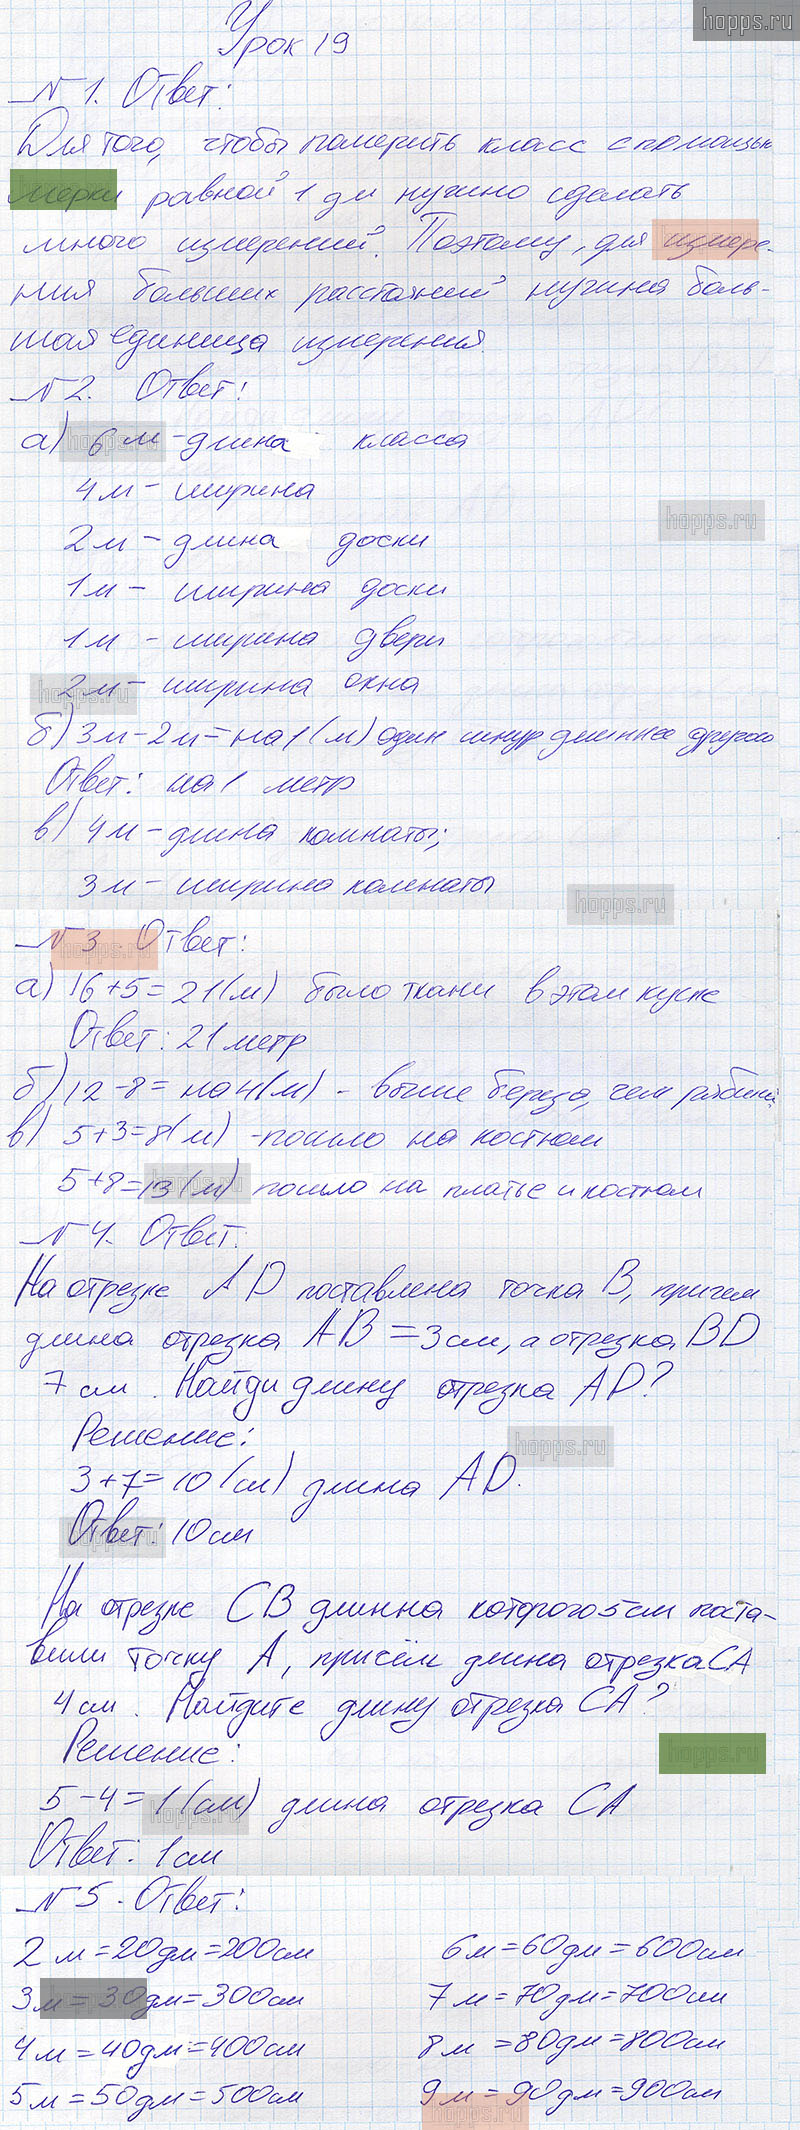 hopps.ru
Урок 19
№ 1. Ответ:
Для того, чтобы померить класс с помощью
мерки равной 1 дм нужно сделать
много измерений. Поэтому, для измере-
ния больших расстояний нужна боль-
шая единица измерения.
№ 2. Ответ:
а) 6 м - длина класса
4 м - ширина
hopps.ru
2 м - длина доски
1 м - ширина доски
1 м - ширина двери
2 м - ширина окна
б) 3 м - 2 м = на 1 (м) один шнур длиннее другого
Ответ: на 1 метр
в) 4 м - длина комнаты;
3 м - ширина комнаты
hopps.ru
№ 3 Ответ:
а) 16 + 5 = 21 (м) было ткани в этом куске
Ответ: 21 метр
б) 12 - 8 = на 4 (м) - выше береза, чем рябина
в) 5 + 3 = 8 (м) - пошло на костюм
5 + 8 = 13 (м) пошло на платье и костюм
№ 4. Ответ:
На отрезке AD поставлена точка B, причем
длина отрезка AB = 3 см, а отрезка BD
7 см. Найди длину отрезка AD?
Решение:
hopps.ru
3 + 7 = 10 (см) длина AD.
Ответ: 10 см
На отрезке CB длинна которого 5 см поста-
вили точку A, причём длина отрезка CA
4 см. Найдите длину отрезка CA?
Решение:
hopps.ru
5 - 4 = 1 (см) длина отрезка CA
Ответ: 1 см
№ 5. Ответ:
2 м = 20 дм = 200 см 6 м = 60 дм = 600 см
3 м = 30 дм = 300 см 7 м = 70 дм = 700 см
4 м = 40 дм = 400 см 8 м = 80 дм = 800 см
5 м = 50 дм = 500 см 9 м = 90 дм = 900 см
hopps.ru